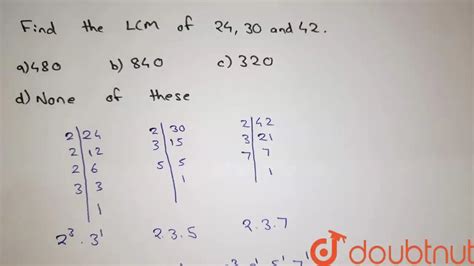 Find the LCM of 24, 30 and 42.
a) 480 b) 840 c) 320
d) None of these
2 24 2 30 2 42
2 12 3 15 3 21
2 6 5 5 7 7
3 3 1 1
1
2³. 3¹ 2.3.5 2.3.7
doubtnut